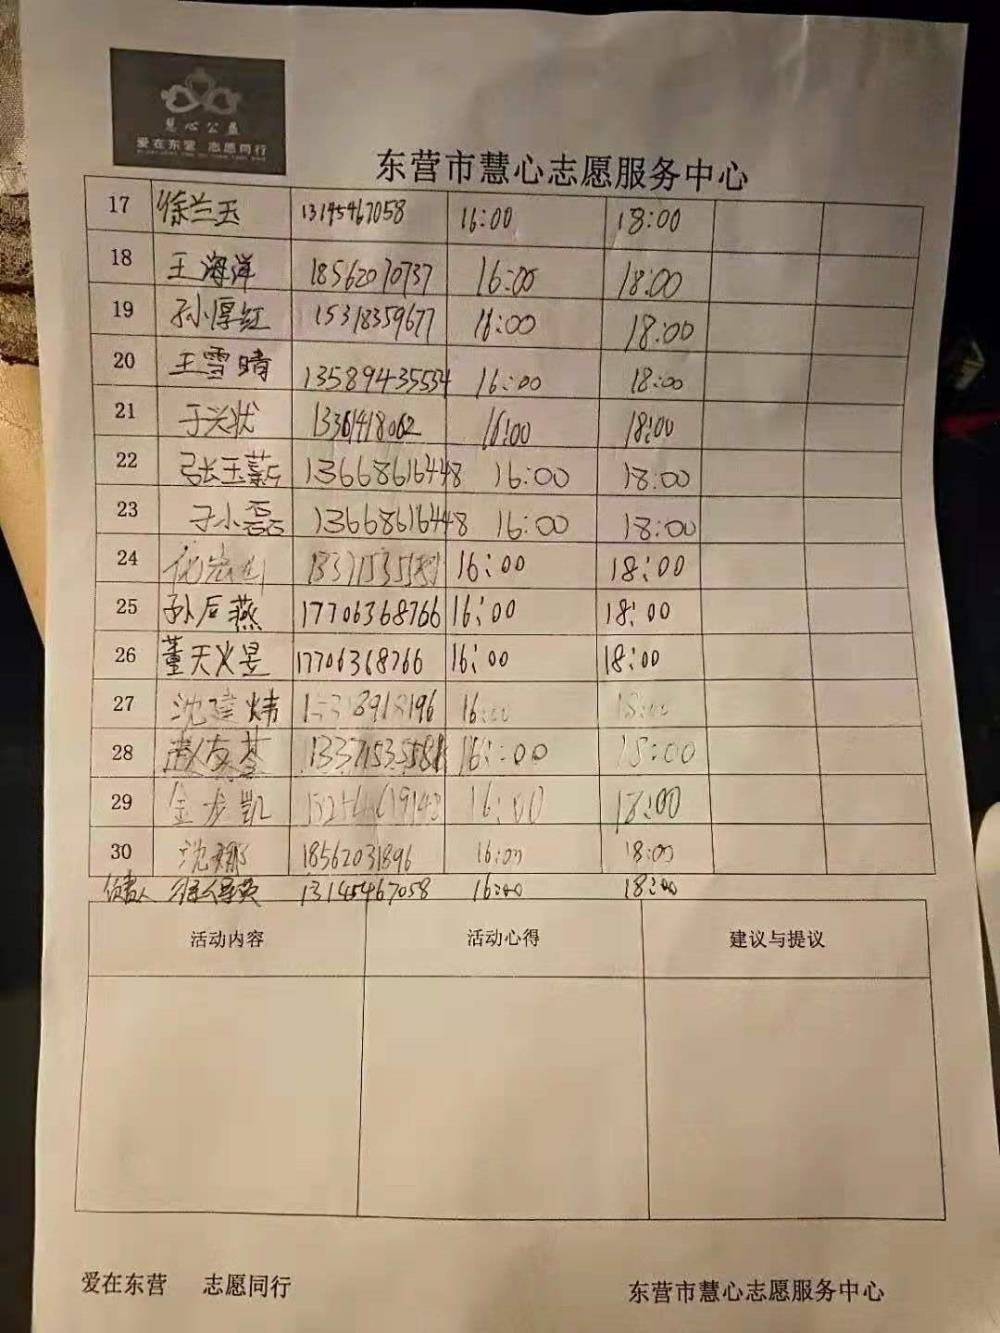 慧心公益
爱在东营 志愿同行
东营市慧心志愿服务中心
17 徐兰玉 13145467058 16:00 18:00
18 王海洋 18562070737 16:00 18:00
19 孙厚红 15318359677 16:00 18:00
20 王雪晴 13589435534 16:00 18:00
21 于兴状 13361418062 16:00 18:00
22 张玉薪 13668616448 16:00 18:00
23 于小磊 13668616448 16:00 18:00
24 16:00 18:00
25 孙后燕 17706368766 16:00 18:00
26 董天火昱 17706368766 16:00 18:00
27 沈建炜 16:00 18:00
28 16:00 18:00
29 金龙凯 16:00 18:00
30 沈娜 18562031896 16:00 18:00
负责人 13145467058 16:00 18:00
活动内容 活动心得 建议与提议
爱在东营 志愿同行 东营市慧心志愿服务中心